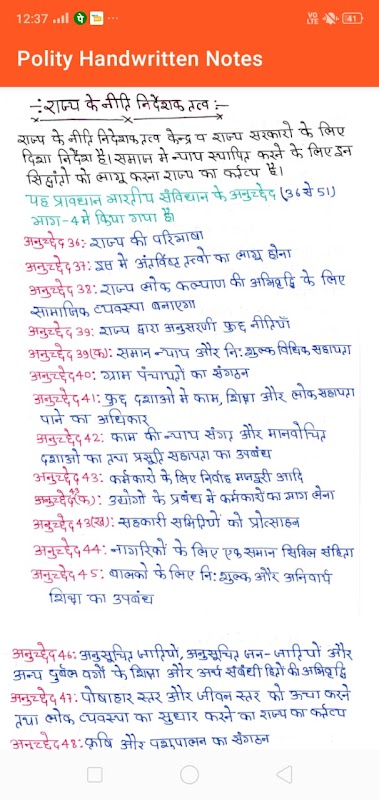 12:37
VO
LTE
41
Polity Handwritten Notes
-: राज्य के नीति निर्देशक तत्व :-
राज्य के नीति निर्देशक तत्व केन्द्र व राज्य सरकारों के लिए
दिशा निर्देश है। समाज में न्याय स्थापित करने के लिए इन
सिद्धांतों को लागू करना राज्य का कर्तव्य है।
यह प्रावधान भारतीय संविधान के अनुच्छेद (36 से 51)
भाग-4 में किया गया है।
अनुच्छेद 36: राज्य की परिभाषा
अनुच्छेद 37: इस में अंतर्विष्ट तत्वों का लागू होना
अनुच्छेद 38: राज्य लोक कल्याण की अभिवृद्धि के लिए
सामाजिक व्यवस्था बनाएगा
अनुच्छेद 39: राज्य द्वारा अनुसरणी कुछ नीतियाँ
अनुच्छेद 39(क): समान न्याय और नि: शुल्क विधिक सहायता
अनुच्छेद 40: ग्राम पंचायतों का संगठन
अनुच्छेद 41: कुछ दशाओं में काम, शिक्षा और लोक सहायता
पाने का अधिकार
अनुच्छेद 42: काम की न्याय संगत और मानवोचित
दशाओं का तथा प्रसूति सहायता का उपबंध
अनुच्छेद 43: कर्मकारों के लिए निर्वाह मजदूरी आदि
अनुच्छेद 43(क): उद्योगों के प्रबंध में कर्मकारों का भाग लेना
अनुच्छेद 43(ख): सहकारी समितियों को प्रोत्साहन
अनुच्छेद 44: नागरिकों के लिए एक समान सिविल संहिता
अनुच्छेद 45: बालकों के लिए नि: शुल्क और अनिवार्य
शिक्षा का उपबंध
अनुच्छेद 46: अनुसूचित जातियों, अनुसूचित जन-जातियों और
अन्य दुर्बल वर्गों के शिक्षा और अर्थ संबंधी हितों की अभिवृद्धि
अनुच्छेद 47: पोषाहार स्तर और जीवन स्तर को ऊंचा करने
तथा लोक व्यवस्था का सुधार करने का राज्य का कर्तव्य
अनुच्छेद 48: कृषि और पशुपालन का संगठन